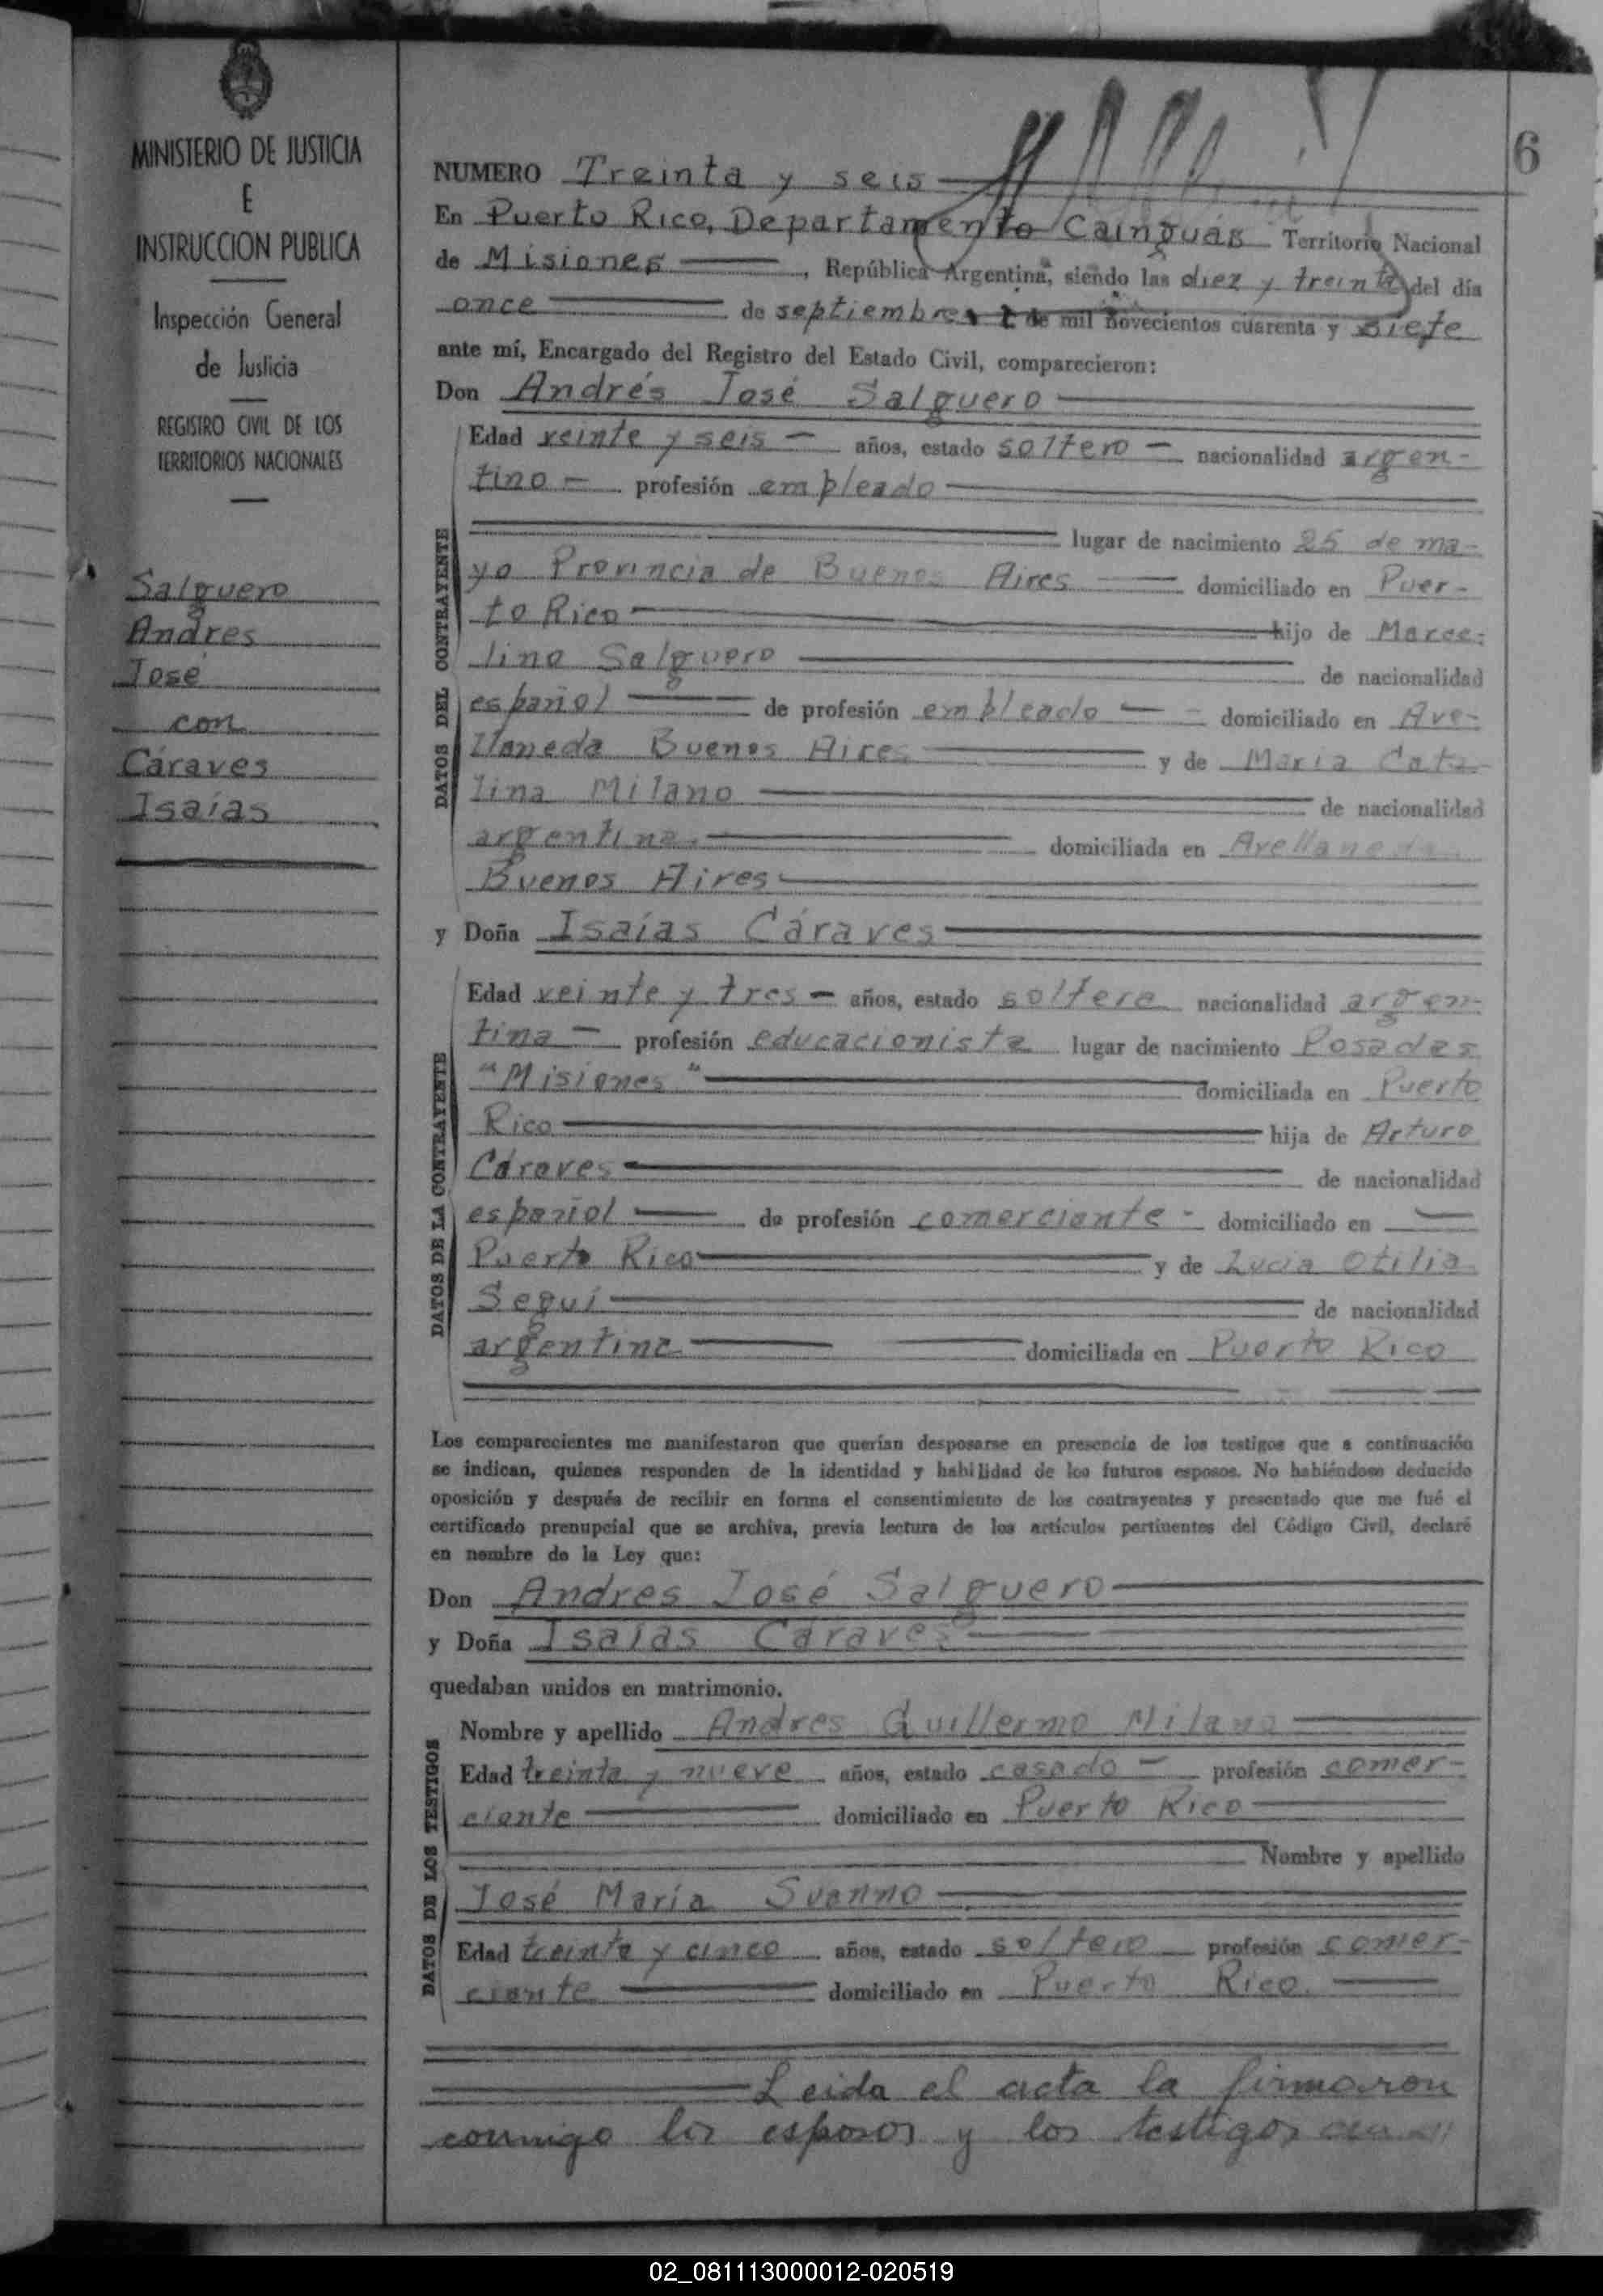 MINISTERIO DE JUSTICIA
E
INSTRUCCION PUBLICA
Inspección General
de Justicia
REGISTRO CIVIL DE LOS
TERRITORIOS NACIONALES
Salguero
Andres
José
con
Cáraves
Isaías
6
NUMERO Treinta y seis
En Puerto Rico, Departamento Cainguás Territorio Nacional
de Misiones, República Argentina, siendo las diez y treinta del día
once de septiembre de mil novecientos cuarenta y siete
ante mí, Encargado del Registro del Estado Civil, comparecieron:
Don Andrés José Salguero
DATOS DEL CONTRAYENTE
Edad veinte y seis años, estado soltero nacionalidad argen-
tino profesión empleado
lugar de nacimiento 25 de ma-
yo Provincia de Buenos Aires domiciliado en Puer-
to Rico hijo de Marce-
lino Salguero de nacionalidad
español de profesión empleado domiciliado en Ave-
llaneda Buenos Aires y de María Cata
lina Milano de nacionalidad
argentina. domiciliada en Avellaneda
Buenos Aires
y Doña Isaías Cáraves
DATOS DE LA CONTRAYENTE
Edad veinte y tres años, estado soltera nacionalidad argen-
tina profesión educacionista lugar de nacimiento Posadas
"Misiones" domiciliada en Puerto
Rico hija de Arturo
Cáraves de nacionalidad
español de profesión comerciante domiciliado en
Puerto Rico y de Lucía Otilia
Seguí de nacionalidad
argentina domiciliada en Puerto Rico
Los comparecientes me manifestaron que querían desposarse en presencia de los testigos que a continuación
se indican, quienes responden de la identidad y habilidad de los futuros esposos. No habiéndose deducido
oposición y después de recibir en forma el consentimiento de los contrayentes y presentado que me fué el
certificado prenupcial que se archiva, previa lectura de los artículos pertinentes del Código Civil, declaré
en nombre de la Ley que:
Don Andres José Salguero
y Doña Isaías Cáraves
quedaban unidos en matrimonio.
DATOS DE LOS TESTIGOS
Nombre y apellido Andres Guillermo Milano
Edad treinta y nueve años, estado casado profesión comer-
ciante domiciliado en Puerto Rico
Nombre y apellido
José María Suanno
Edad treinta y cinco años, estado soltero profesión comer-
ciante domiciliado en Puerto Rico.
Leida el acta la firmaron
conmigo los esposos y los testigos
02_081113000012-020519